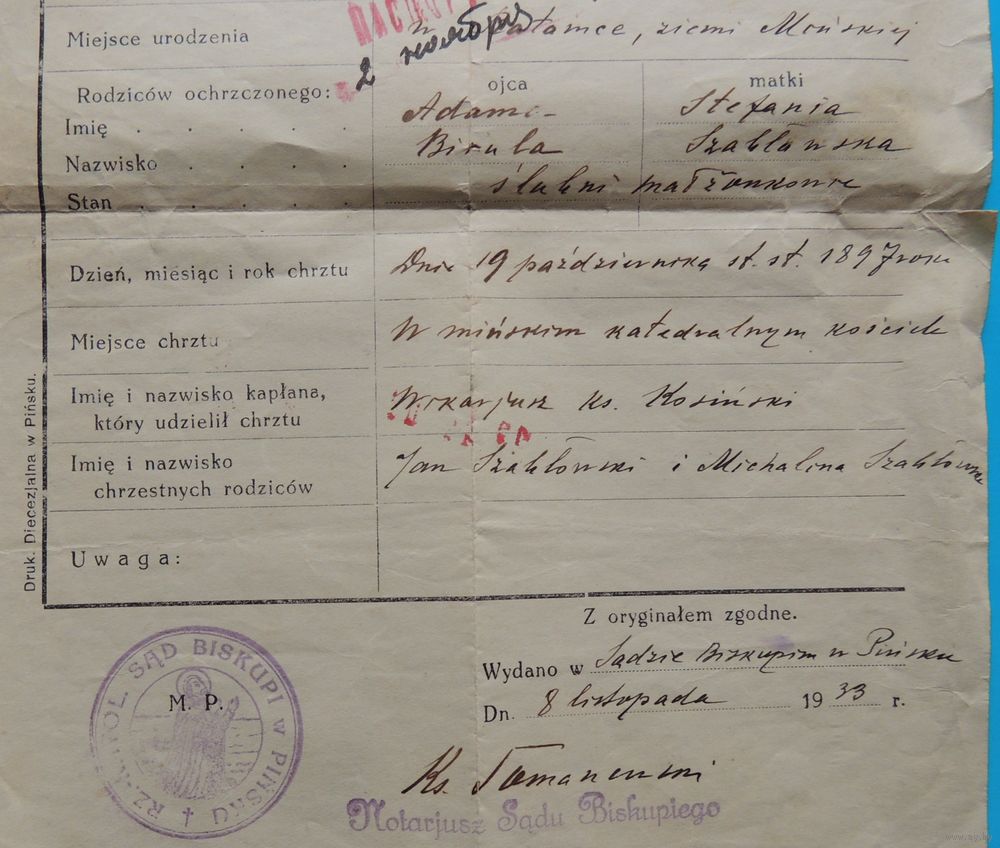 Miejsce urodzenia
w ziemi Mińskiej
2
Rodziców ochrzczonego:
ojca matki
Imię Adam Stefania
Nazwisko Birula Szabłowska
Stan ślubni małżonkowie
Dzień, miesiąc i rok chrztu Dnia 19 października st. st. 1897 roku
Miejsce chrztu W mińskim katedralnym kościele
Imię i nazwisko kapłana, Wikarjusz ks. Kosiński
który udzielił chrztu
Imię i nazwisko Jan Szabłowski i Michalina Szabłowska
chrzestnych rodziców
Uwaga:
Druk. Diecezjalna w Pińsku.
Z oryginałem zgodne.
Wydano w Sądzie Biskupim w Pińsku
Dn. 8 listopada 1933 r.
M. P.
SĄD BISKUPI w PIŃSKU
Ks.
Notarjusz Sądu Biskupiego